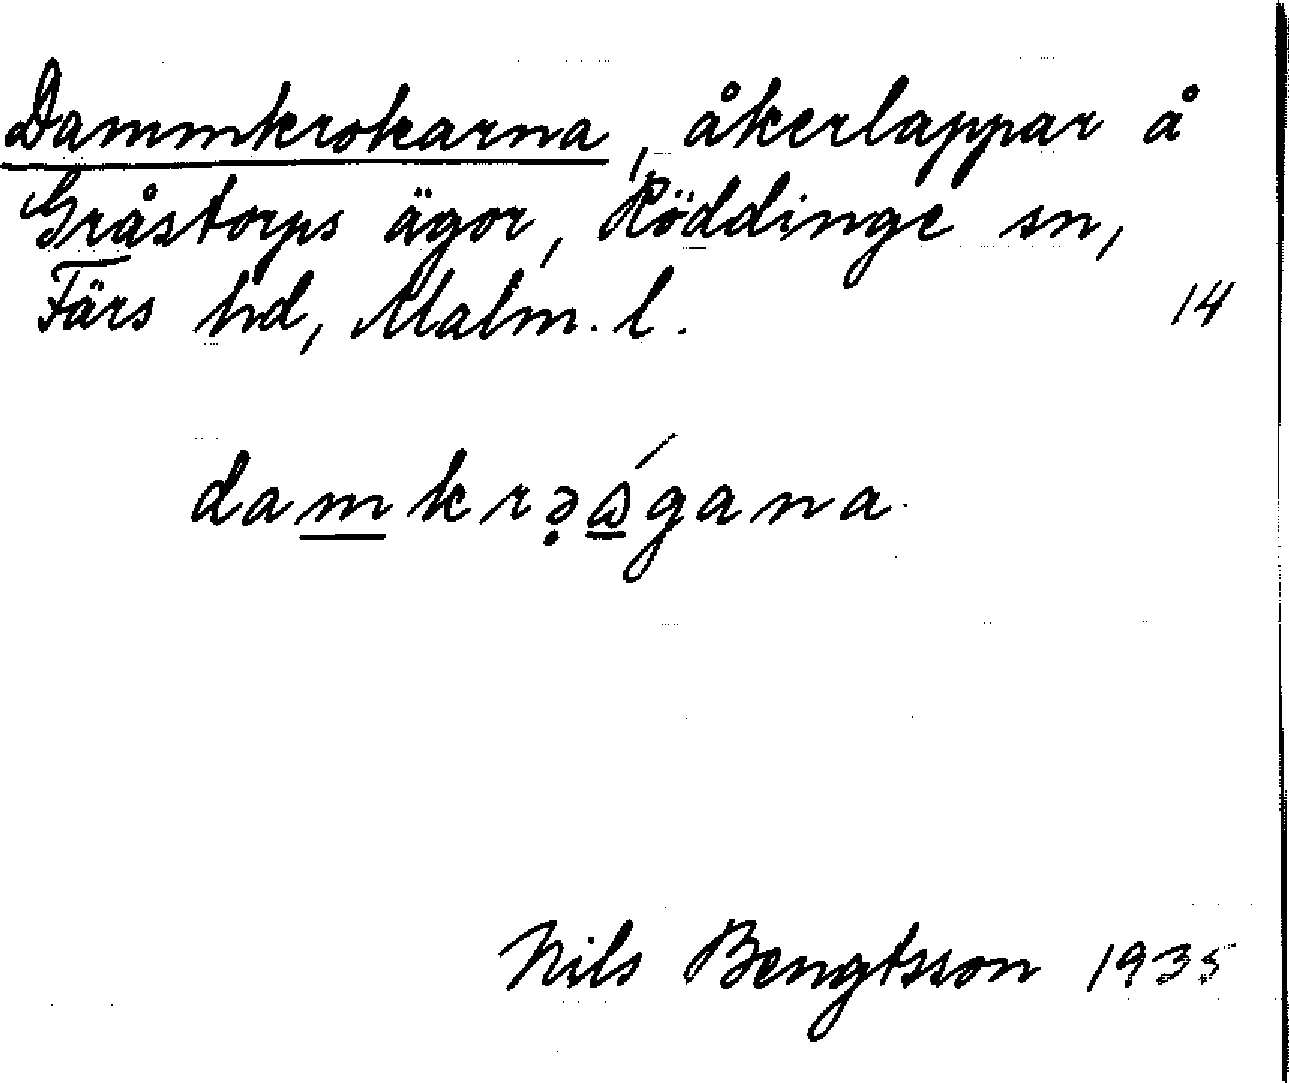 Dammkrokarna, åkerlappar å
Gråstorps ägor, Röddinge sn,
Färs hd, Malm. l. 14
damkrə̣ágana
Nils Bengtsson 1935